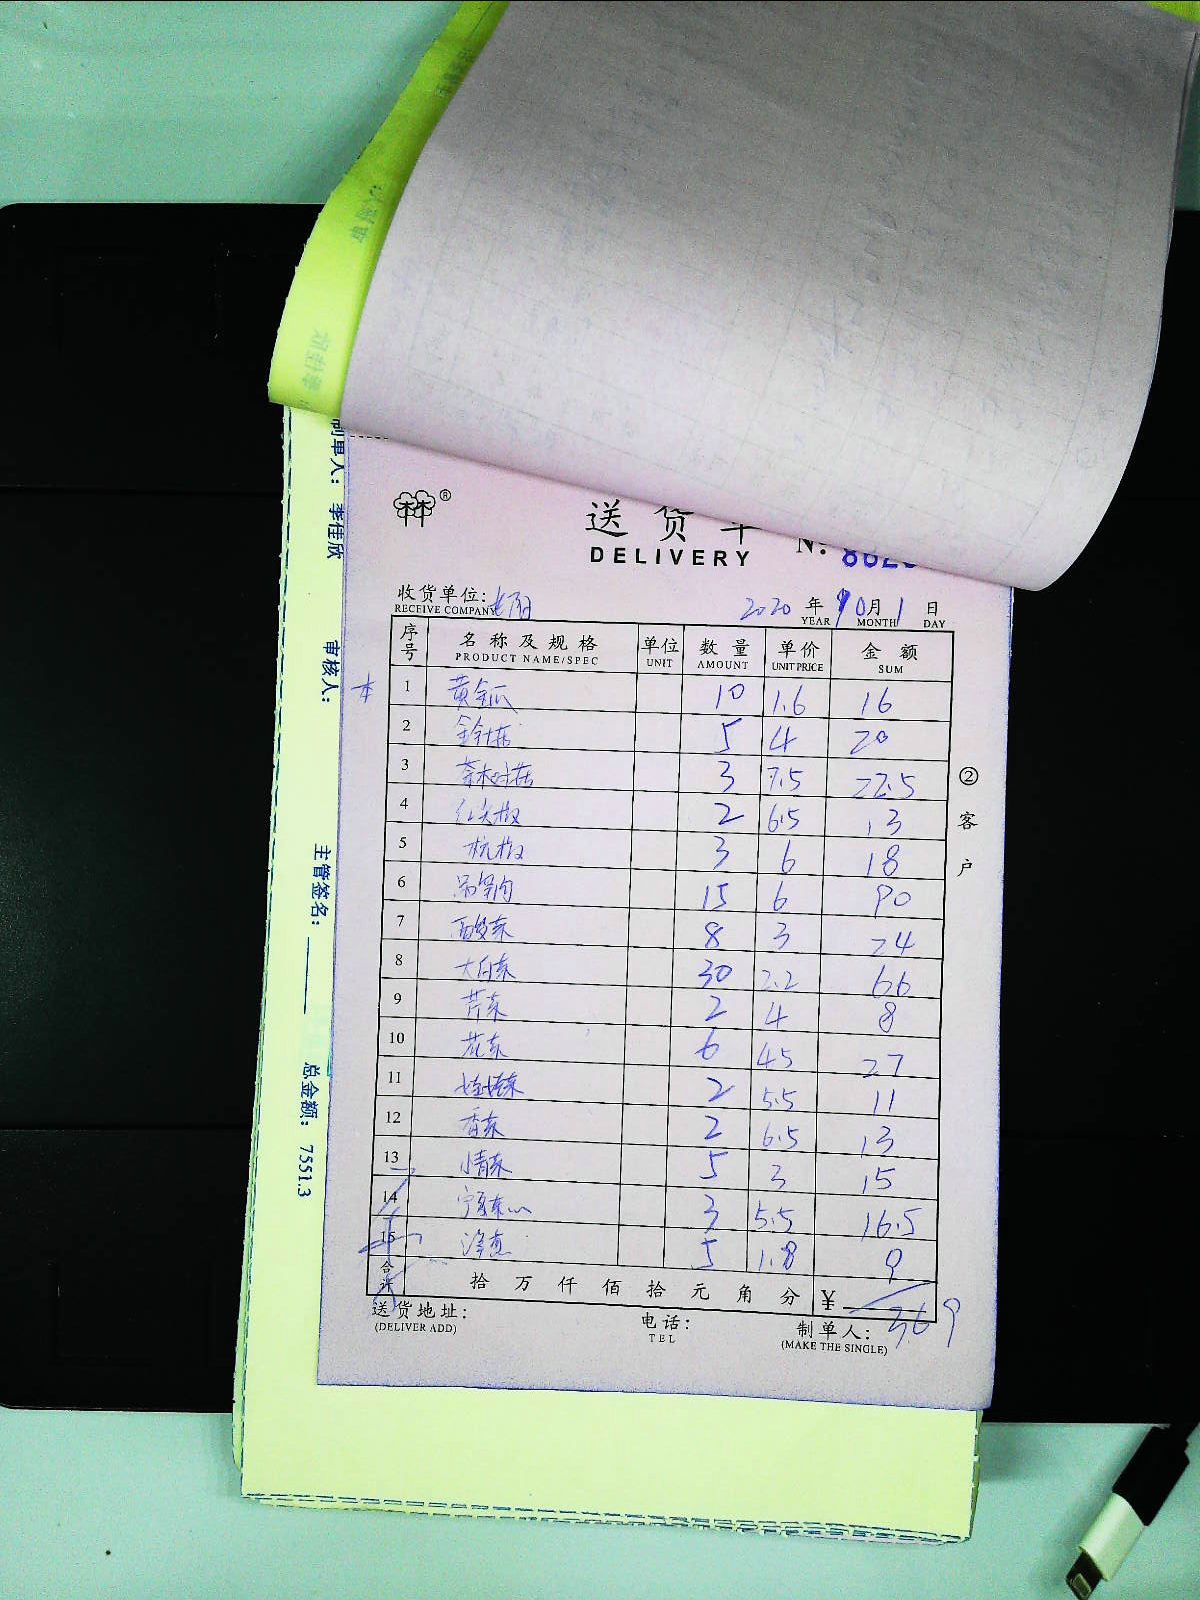 送货单
DELIVERY
收货单位: RECEIVE COMPANY
2020 年 YEAR 10 月 MONTH 1 日 DAY
序号 名称及规格 PRODUCT NAME/SPEC 单位 UNIT 数量 AMOUNT 单价 UNIT PRICE 金额 SUM
1 黄金瓜 10 1.6 16
2 金针菇 5 4 20
3 茶树菇 3 7.5 22.5
4 红尖椒 2 6.5 13
5 杭椒 3 6 18
6 15 6 90
7 酸菜 8 3 24
8 大白菜 30 2.2 66
9 芹菜 2 4 8
10 花菜 6 4.5 27
11 娃娃菜 2 5.5 11
12 香菜 2 6.5 13
13 小青菜 5 3 15
14 3 5.5 16.5
15 洋葱 5 1.8 9
合计 拾 万 仟 佰 拾 元 角 分 ¥ 369
送货地址: (DELIVER ADD)
电话: TEL
制单人: (MAKE THE SINGLE)
② 客户
制单人: 李佳欣 审核人: 主管签名: 总金额: 7551.3